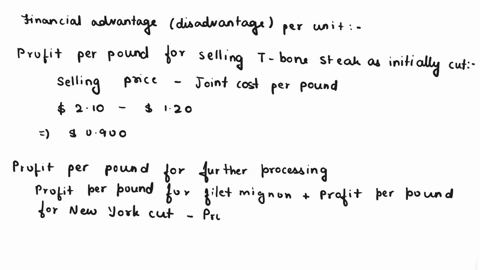 Financial advantage (disadvantage) per unit:-
Profit per pound for selling T-bone steak as initially cut:-
Selling price - Joint cost per pound
$ 2.10 - $ 1.20
=) $ 0.900
Profit per pound for further processing
Profit per pound for filet mignon + Profit per pound
for New York cut - Pr